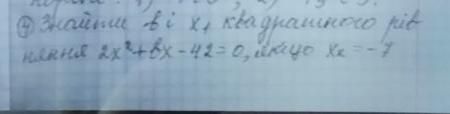 ④ Знайти в і x₁ квадратного рів
няння 2x²+вx-42=0, якщо x₂=-7